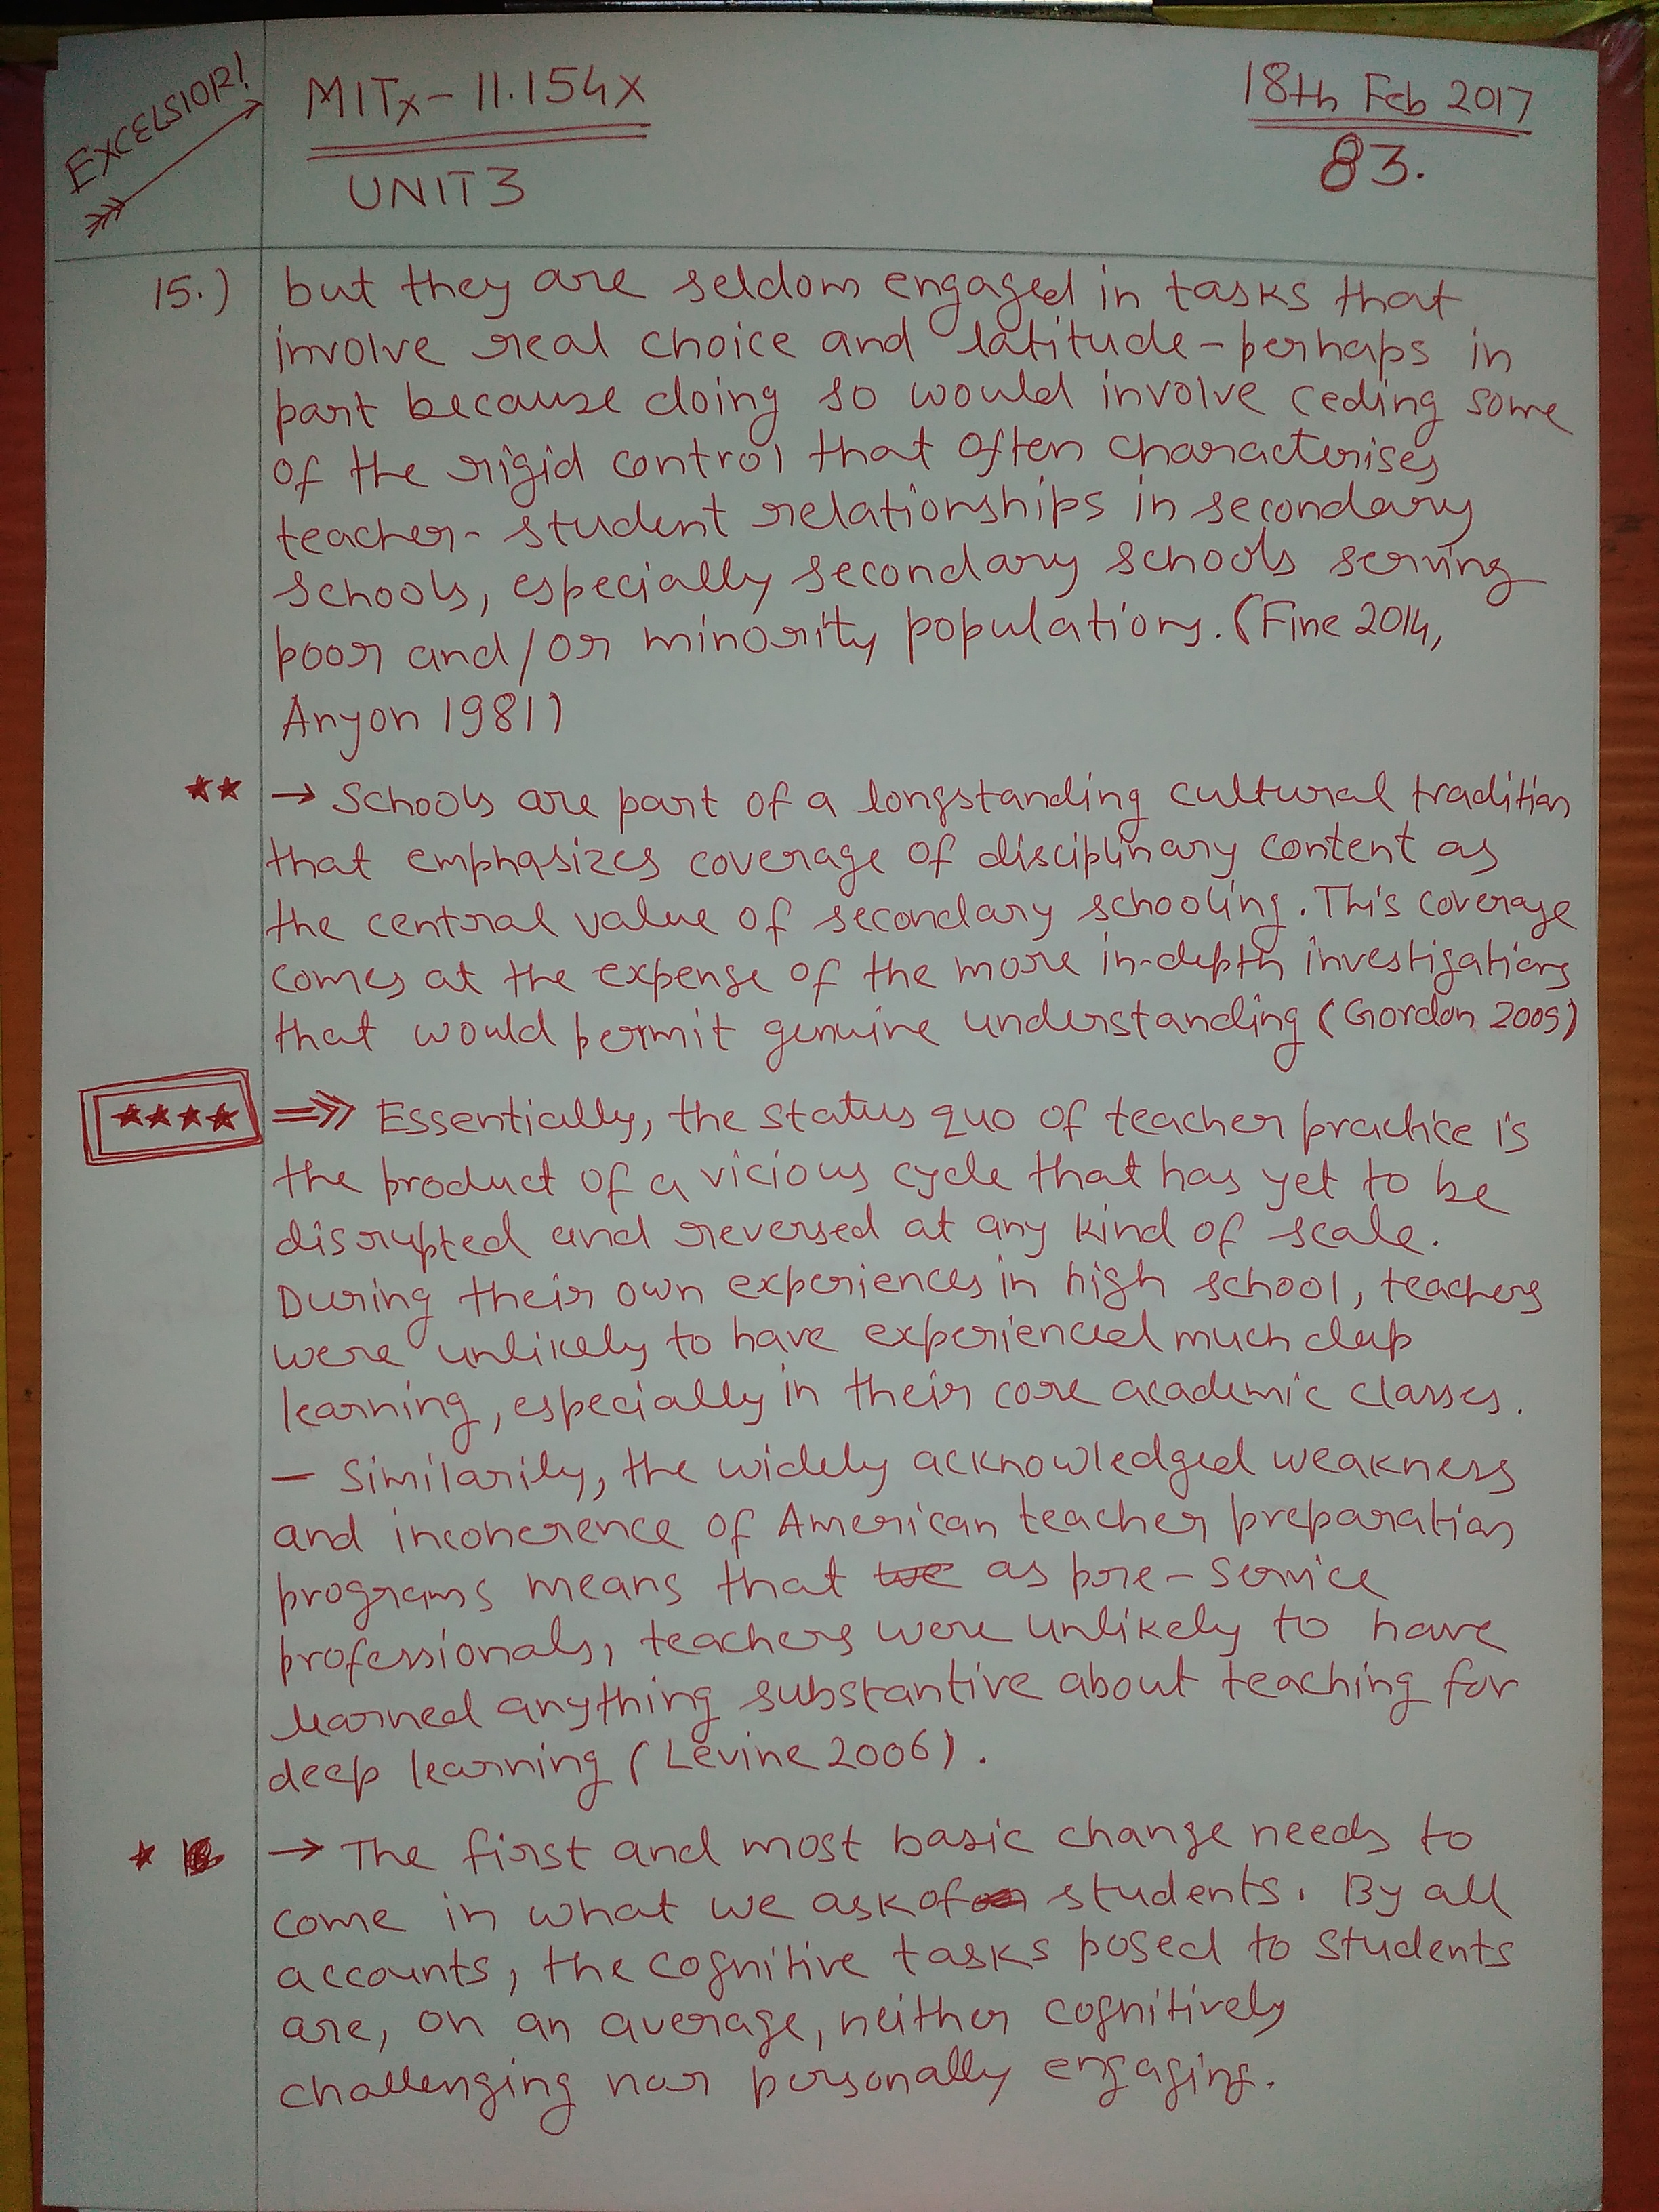 EXCELSIOR!
MITx - 11.154x
UNIT 3
18th Feb 2017
83.
15.) but they are seldom engaged in tasks that
involve real choice and latitude - perhaps in
part because doing so would involve ceding some
of the rigid control that often characterises
teacher - student relationships in secondary
schools, especially secondary schools serving
poor and/or minority populations. (Fine 2014,
Anyon 1981)
★★ → Schools are part of a longstanding cultural tradition
that emphasizes coverage of disciplinary content as
the central value of secondary schooling. This coverage
comes at the expense of the more in-depth investigations
that would permit genuine understanding (Gordon 2009)
★★★★ ⇒ Essentially, the status quo of teacher practice is
the product of a vicious cycle that has yet to be
disrupted and reversed at any kind of scale.
During their own experiences in high school, teachers
were unlikely to have experienced much deep
learning, especially in their core academic classes.
— Similarily, the widely acknowledged weakness
and incoherence of American teacher preparation
programs means that as pre-service
professionals, teachers were unlikely to have
learned anything substantive about teaching for
deep learning (Levine 2006).
★ → The first and most basic change needs to
come in what we ask of students. By all
accounts, the cognitive tasks posed to students
are, on an average, neither cognitively
challenging nor personally engaging.